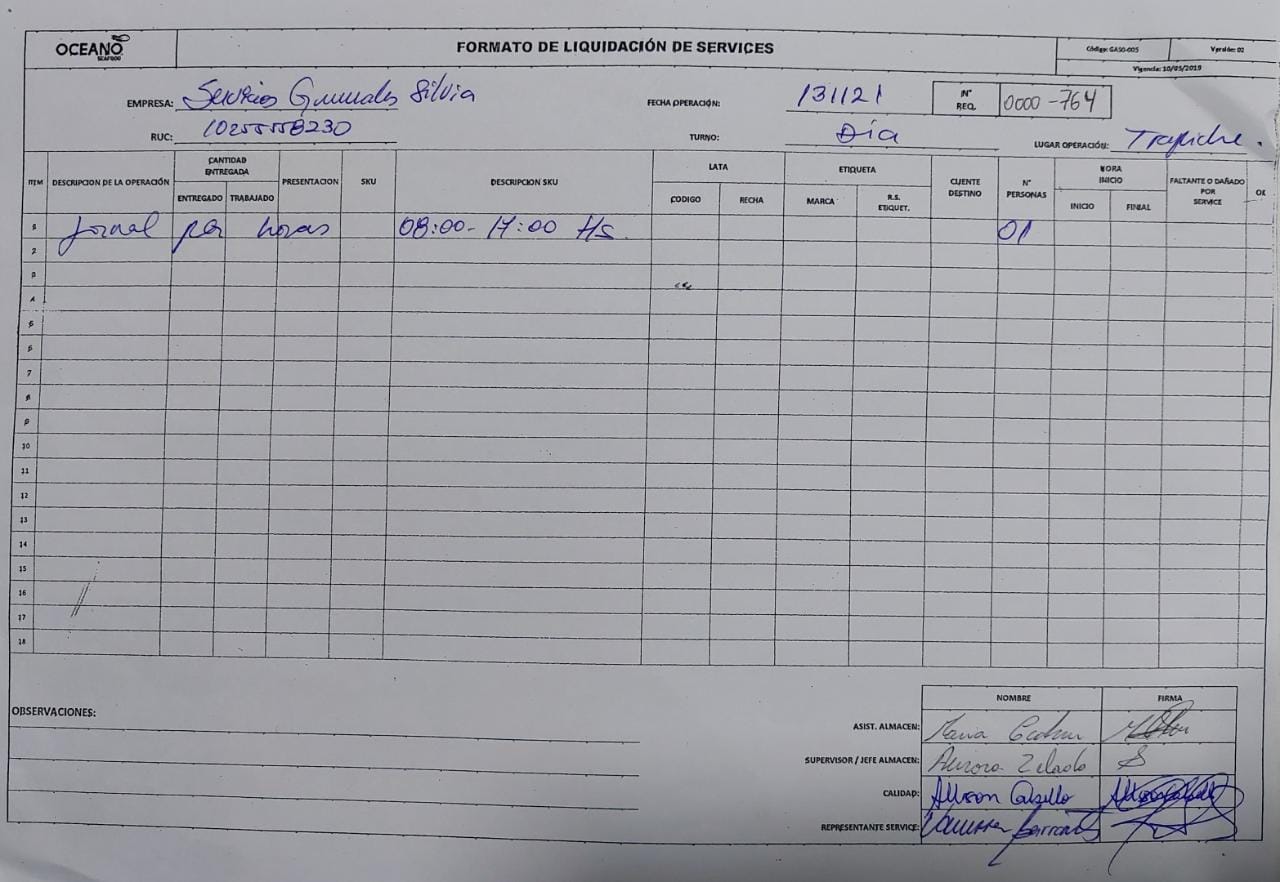 OCEANO
SEAFOOD
FORMATO DE LIQUIDACIÓN DE SERVICES
Código: GASO-005
Versión: 02
Vigencia: 10/05/2019
EMPRESA: Servicios Generales Silvia
FECHA OPERACIÓN: 131121
N° REQ. 0000-764
RUC: 10255558230
TURNO: Día
LUGAR OPERACIÓN: Trapiche.
ITEM
DESCRIPCION DE LA OPERACIÓN
CANTIDAD ENTREGADA
ENTREGADO
TRABAJADO
PRESENTACION
SKU
DESCRIPCION SKU
LATA
CODIGO
FECHA
ETIQUETA
MARCA
R.S. ETIQUET.
CLIENTE DESTINO
N° PERSONAS
HORA INICIO
INICIO
FINIAL
FALTANTE O DAÑADO POR SERVICE
OK
1 Jornal por horas 08:00-17:00 Hs. 01
2
3
4
5
6
7
8
9
10
11
12
13
14
15
16
17
18
OBSERVACIONES:
NOMBRE
FIRMA
ASIST. ALMACEN: Maria
SUPERVISOR / JEFE ALMACEN: Aurora
CALIDAD: Allison
REPRESENTANTE SERVICE: Vanessa